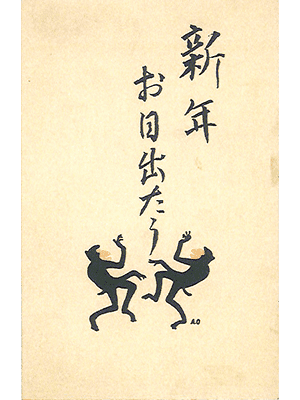 新年
お目出たう
AO